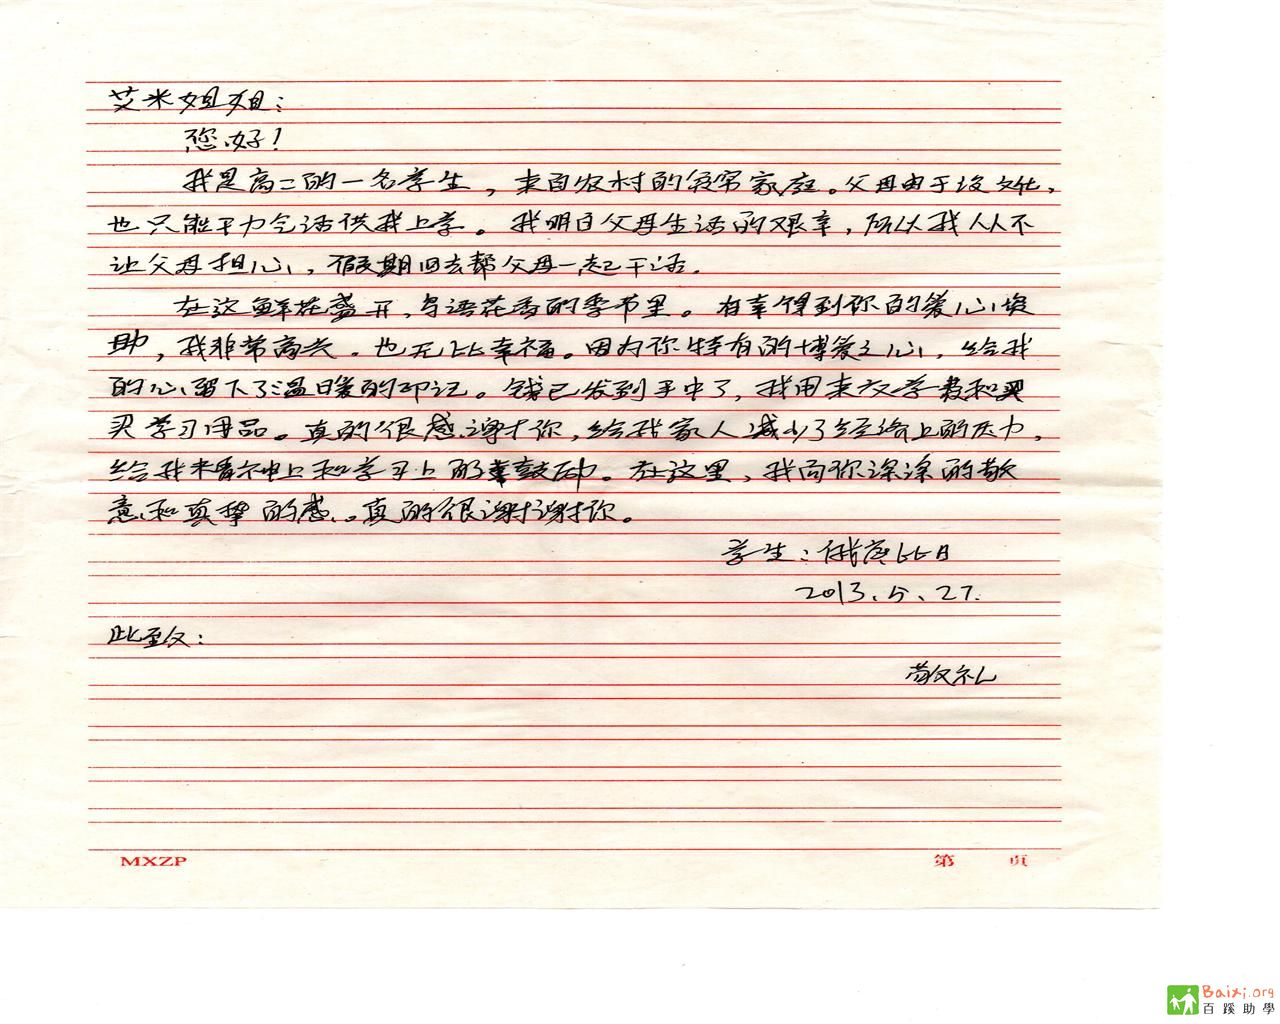 艾米姐姐：
您好！
我是高二的一名学生，来自农村的贫穷家庭。父母由于没文化，
也只能干力气活供我上学。我明白父母生活的艰辛，所以我从不
让父母担心，假期回去帮父母一起干活.
在这鲜花盛开，鸟语花香的季节里。有幸得到你的爱心资
助，我非常高兴．也无比幸福。因为你特有的博爱之心，给我
的心留下了温暖的印记。钱已发到手中了，我用来交学费和
买学习用品。真的很感谢你，给我家人减少了经济上的压力，
给我精神上和学习上的鼓励。在这里，我向你深深的敬
意和真挚的感.。真的很谢谢你。
学生：俄比日
2013.5.27.
此至仪：
敬礼
MXZP 第 页
Baixi.org
百蹊助學